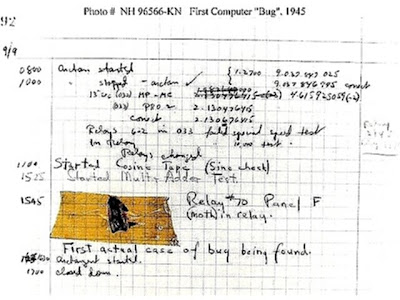 Photo # NH 96566-KN First Computer "Bug", 1945
92
9/9
0800 started
1000 " stopped -
{ 1.2700 9.037 847 025
9.037 846 995
13" MP - MC 4.615925059(-2)
(033) PRO 2 2.130476415
2.130676415
Relays 6-2 in 033 failed special speed test
in relay 10,000 test.
Relays changed
1100 Started Cosine Tape (Sine check)
1525 Started Multi Adder Test.
1545 Relay #70 Panel F
(moth) in relay.
First actual case of bug being found.
started.
1700 closed down.